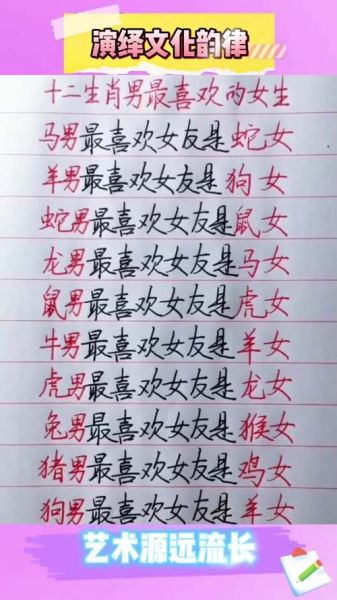 演绎文化韵律
十二生肖男最喜欢的女生
马男最喜欢女友是蛇女
羊男最喜欢女友是狗女
蛇男最喜欢女友是鼠女
龙男最喜欢女友是马女
鼠男最喜欢女友是虎女
牛男最喜欢女友是羊女
虎男最喜欢女友是龙女
兔男最喜欢女友是猴女
猪男最喜欢女友是鸡女
狗男最喜欢女友是羊女
艺术源远流长